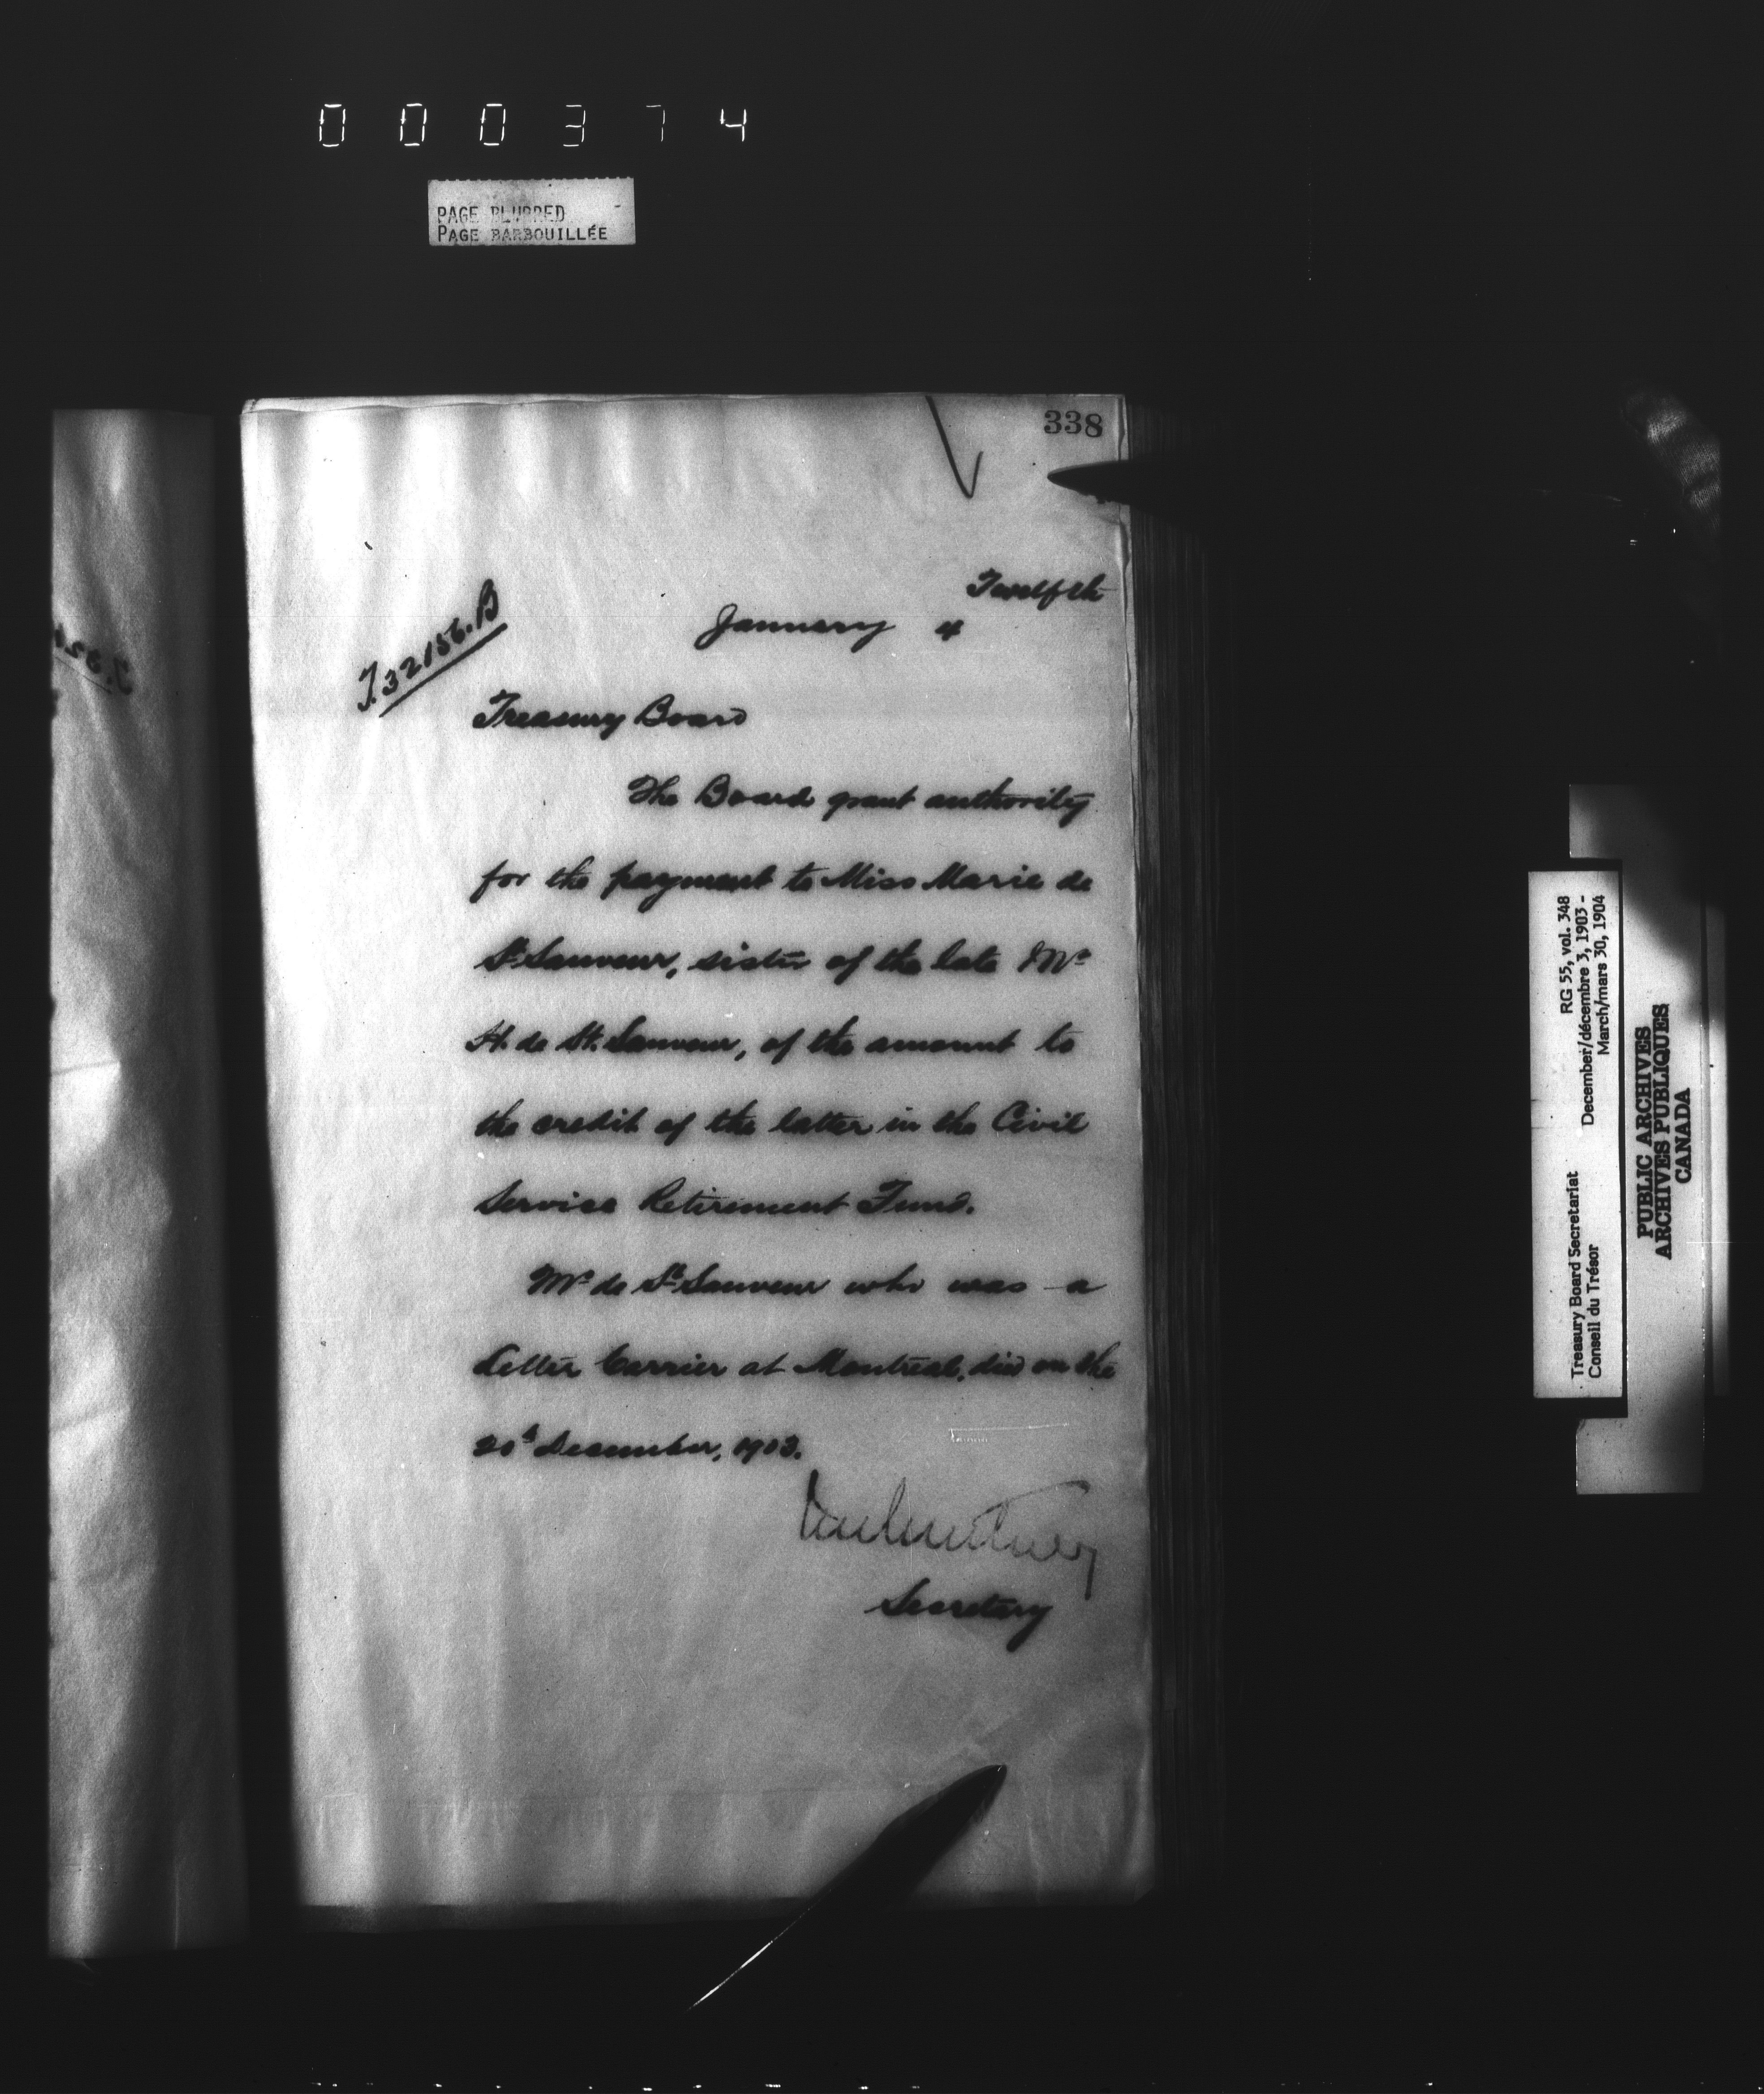 000374
PAGE BLURRED
PAGE BARBOUILLÉE
338
Twelfth
January 4
T.32156.B
Treasury Board
The Board grant authority
for the payment to Miss Marie de
St Sauveur, sister of the late Mr
H. de St. Sauveur, of the amount to
the credit of the latter in the Civil
Service Retirement Fund.
Mr de St Sauveur who was a
Letter Carrier at Montreal, died on the
20th December, 1903.
Secretary
Treasury Board Secretariat RG 55, vol. 348
Conseil du Trésor December/décembre 3, 1903 -
March/mars 30, 1904
PUBLIC ARCHIVES
ARCHIVES PUBLIQUES
CANADA